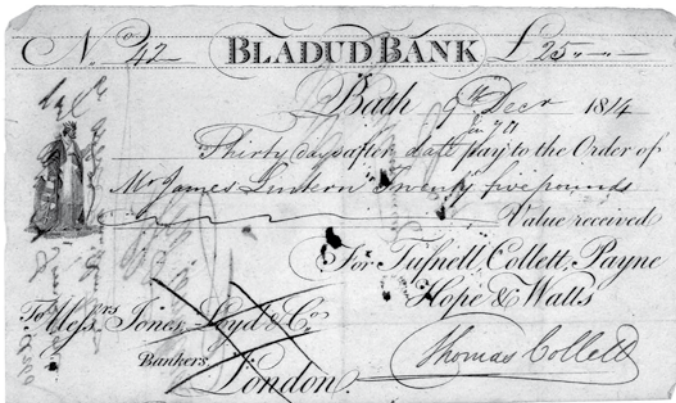 No. 42 BLADUD BANK £25
Bath 9th Decr 1814
Thirty days after date pay to the Order of
Mr James Lintern Twenty five pounds
Value received
For Tufnell, Collett, Payne
Hope & Watts
To Messrs Jones, Loyd & Co
Bankers
London.
Thomas Collett